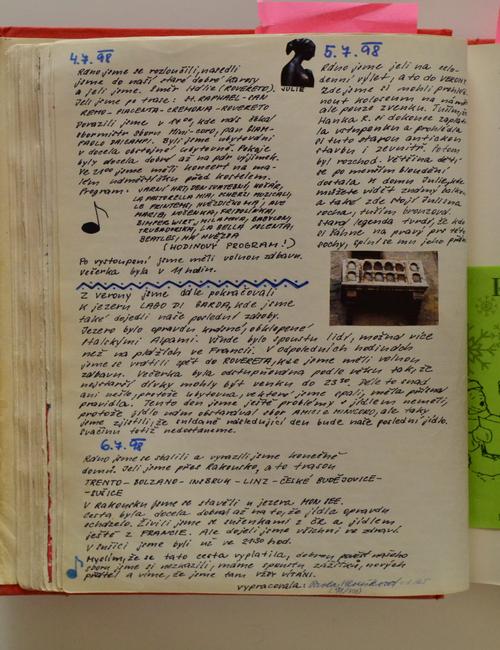 4.7.98
Ráno jsme se rozloučili, nasedli
jsme do naší staré dobré Karosy
a jeli jsme. Směr Itálie (ROVERETO).
Jeli jsme po trase: ST. RAPHAEL - SAN-
REMO - PIACENZA - CREMONA - ROVERETO
Dorazili jsme v kde nás čekal
sbormistr sboru Mini-coro, pan GIAN-
PAOLO DAICAMPI. Byli jsme ubytováni
v docela obyčejné ubytovně. Pokoje
byly docela dobré až na pár výjimek.
Ve 21:00 jsme měli koncert na ma-
lém náměstíčku před kostelem.
Program: JARNÍ HRY, DEN SVATEBNÍ, HOŘKÉ,
LA PASTORELLA MIA,
LE PRINTEMPS, HVĚZDIČKA MÁ, AVE
MARIA,
ZIMPERWIET, MILAMALA, BABYLON,
TRUBADURSKÁ, LA BELLA POLENTA,
BEATLES, MÁ HVĚZDA
(HODINOVÝ PROGRAM!)
Po vystoupení jsme měli volnou zábavu.
Večerka byla v 11 hodin.
JULIE
5.7.98
Ráno jsme jeli na celo-
denní výlet, a to do VERONY.
Zde jsme si mohli prohléd-
nout koloseum na náměs
ale pouze zvenku. Tuším,
Hanka R. si dokonce zapla
la vstupenku a prohlédla
si tuto starou antickou
stavbu i zevnitř. Potom
byl rozchod. Většina dětí
se po menším bloudění
dostala k domu Julie, kde
můžete vidět známý balkón
a také zde stojí Juliina
socha, tuším bronzová.
stará legenda tvrdí, že kdo
si sáhne na pravý prs této
sochy, splní se mu jeho přání
Z Verony jsme dále pokračovali
k jezeru LAGO DI GARDA, kde jsme
také dojedli naše poslední zásoby.
Jezero bylo opravdu krásné, obklopené
Italskými Alpami. Všude bylo spoustu lidí, možná více
než na plážích ve Francii. V odpoledních hodinách
jsme se vrátili zpět do ROVERETA, kde jsme měli volnou
zábavu. Večerka byla odstupňována podle věku tak, že
nejstarší dívky mohly být venku do 23:30. Déle to snad
ani nešlo, protože ubytovna, ve které jsme spali, měla přísná
pravidla. Tento den jsme ještě problémy s jídlem neměli,
protože jídlo nám obstarával sbor AMICI E MINICORO, ale taky
jsme zjistili, že snídaně následující den bude naše poslední jídlo.
Svačinu totiž nedostaneme.
6.7.98
Ráno jsme se sbalili a vyrazili jsme konečně
domů. Jeli jsme přes Rakousko, a to trasou
TRENTO - BOLZANO - INSBRUK - LINZ - ČESKÉ BUDĚJOVICE -
- SUŠICE
V Rakousku jsme se stavěli u jezera MONSEE.
Cesta byla docela dobrá až na to, že jídla opravdu
ocházelo. Živili jsme se sušenkami z ČR a jídlem
ještě z FRANCIE. Ale dojeli jsme všichni ve zdraví.
V Sušici jsme byli už ve 21:30 hod.
Myslím, že se tato cesta vyplatila, dobrou pověst našeho
sboru jsme si nezkazili, máme spoustu zážitků, nových
přátel a víme, že jsme tam VŽDY VÍTÁNI.
vypracovala: